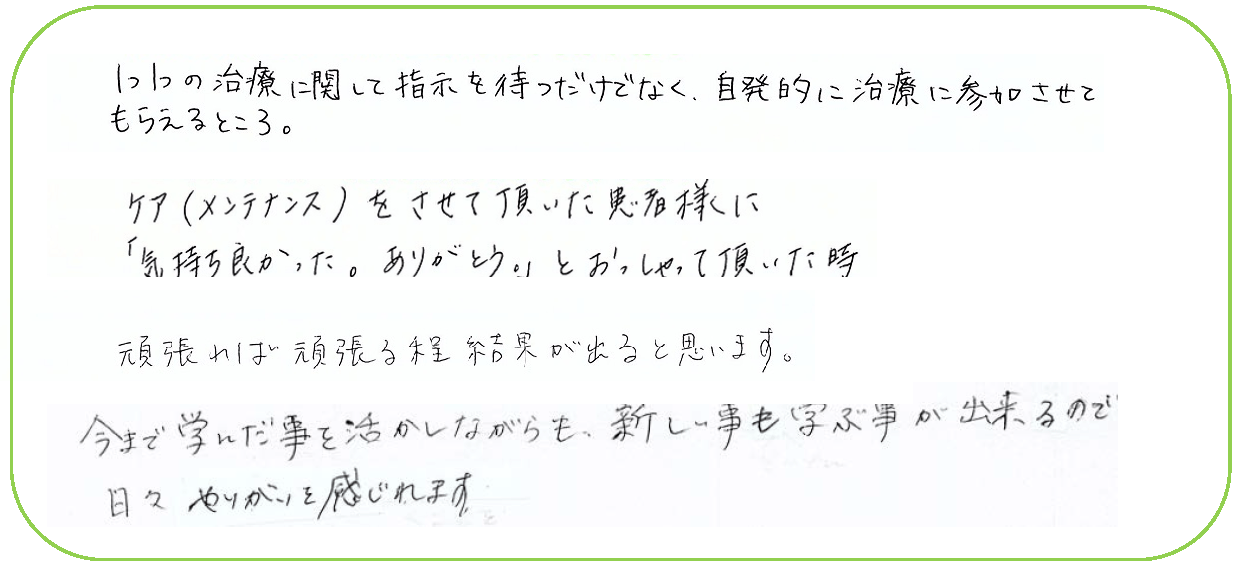 1つ1つの治療に関して指示を待つだけでなく、自発的に治療に参加させて
もらえるところ。
ケア(メンテナンス)をさせて頂いた患者様に
「気持ち良かった。ありがとう。」とおっしゃって頂いた時
頑張れば頑張る程結果が出ると思います。
今まで学んだ事を活かしながらも、新しい事も学ぶ事が出来るので
日々やりがいを感じれます